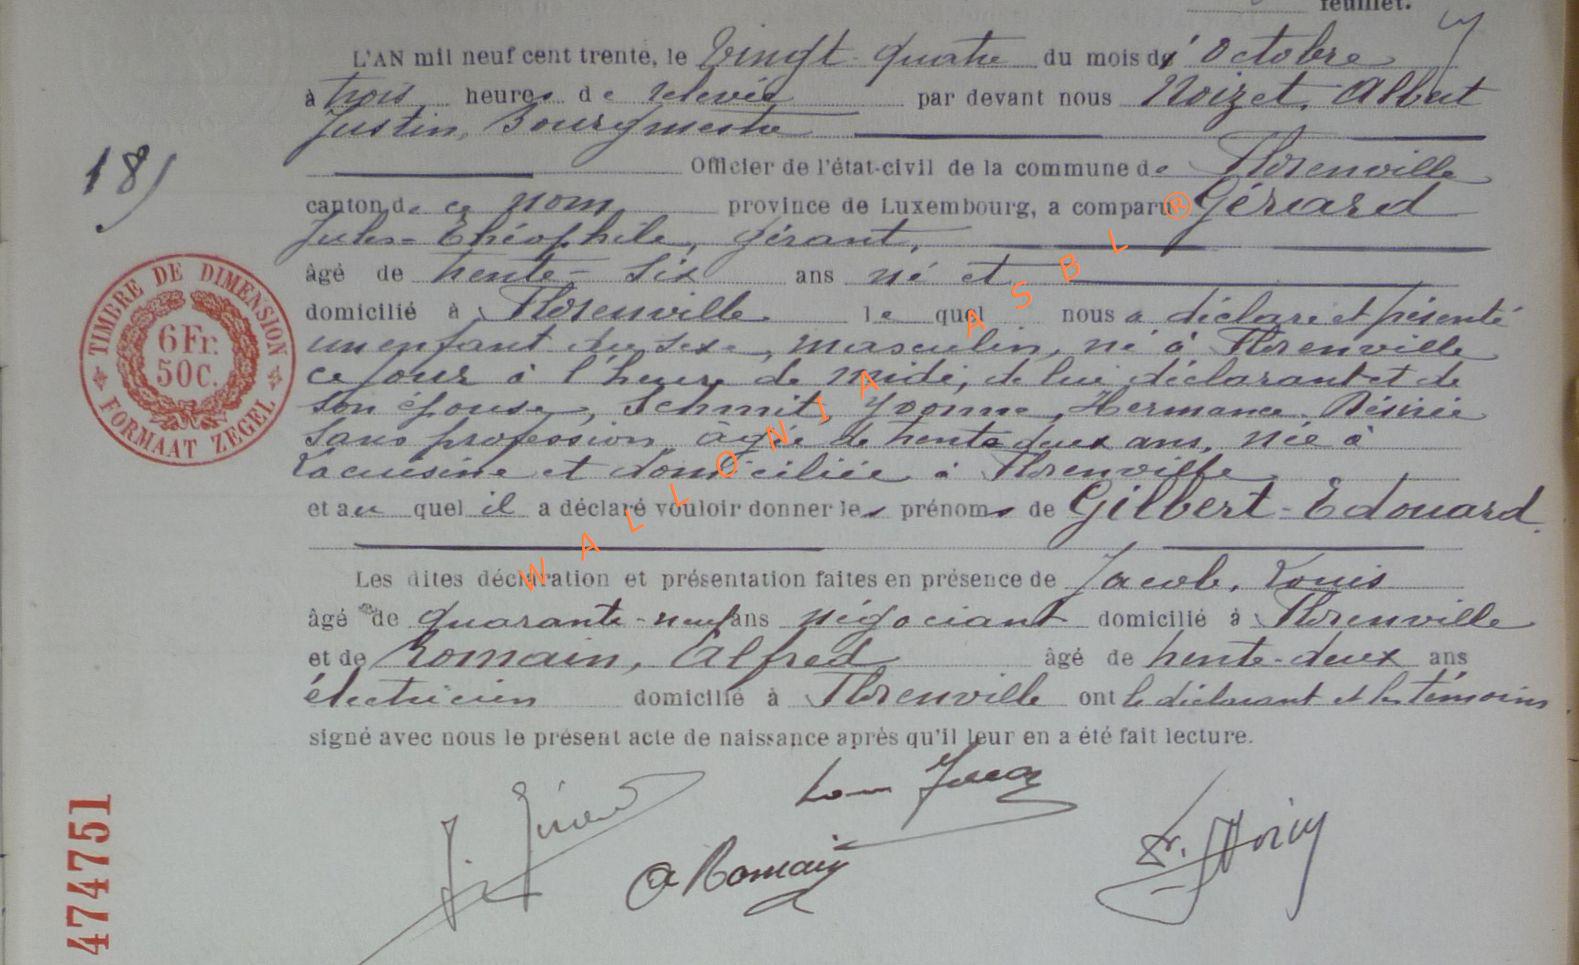 feuillet.
L'AN mil neuf cent trente, le Vingt-quatre du mois d'Octobre
à trois heures de relevée par devant nous Noizet, Albert
Justin, Bourgmestre
Officier de l'état-civil de la commune de Florenville
18
canton de ce nom province de Luxembourg, a comparu Gérard
Jules-Théophile, gérant,
âgé de trente-six ans né et
domicilié à Florenville lequel nous a déclaré et présenté
un enfant du sexe masculin, né à Florenville
ce jour à l'heure de midi, de lui déclarant et de
son épouse, Schmit, Yvonne, Hermance, Désirée
sans profession âgée de trente deux ans, née à
Lacuisine et domiciliée à Florenville
et auquel il a déclaré vouloir donner les prénoms de Gilbert-Edouard.
Les dites déclaration et présentation faites en présence de Jacob, Louis
âgé de quarante-neuf ans négociant domicilié à Florenville
et de Romain, Alfred âgé de trente-deux ans
électricien domicilié à Florenville ont le déclarant et les témoins
signé avec nous le présent acte de naissance après qu'il leur en a été fait lecture.
TIMBRE DE DIMENSION
6 Fr.
50 C.
FORMAAT ZEGEL
WALLONIA ASBL ®
J. Gérard
Louis Jacob
A Romain
474751